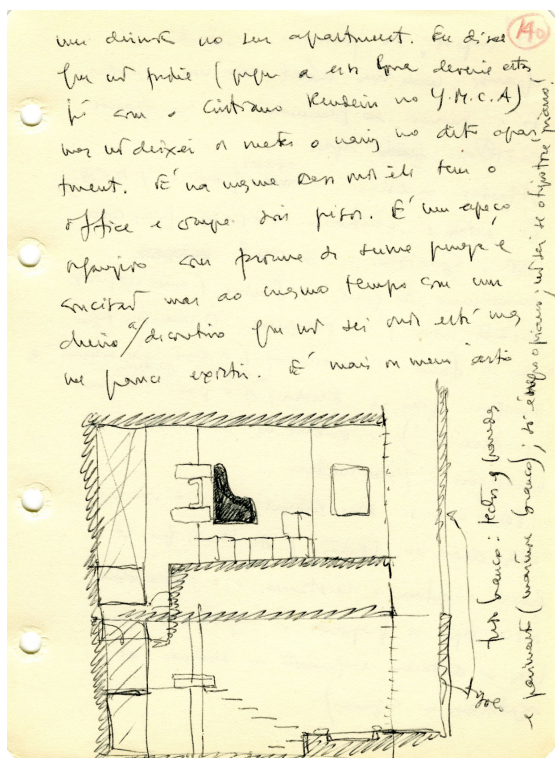 140
um drink no seu apartment. Eu disse
que não podia (porque a esta hora deveria estar
já com o Cristiano Rendeiro no Y.M.C.A)
mas não deixei de meter o nariz no dito apar
tment. É na mesma casa onde ele tem o
office e ocupa dois pisos. É um espaço
com procura de suma pureza e
concisão mas ao mesmo tempo com um
cheiro a/decorativo que não sei onde está mas
me parece existir. É mais ou menos isto
tudo branco: tectos e paredes
e pavimento (mármore branco); só é negro o piano; não sei se o piano!